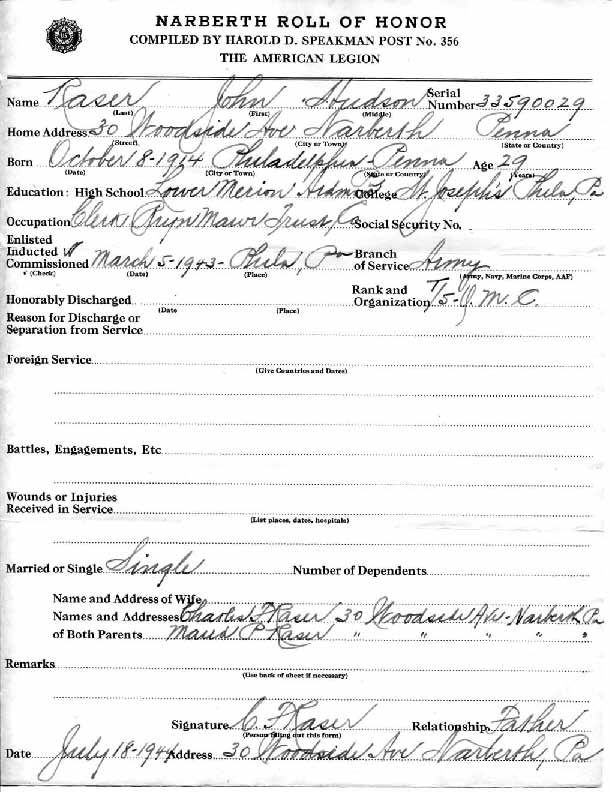 NARBERTH ROLL OF HONOR
COMPILED BY HAROLD D. SPEAKMAN POST No. 356
THE AMERICAN LEGION
Name Raser John Hudson Serial Number 33590029
(Last) (First) (Middle)
Home Address 30 Woodside Ave Narberth Penna
(Street) (City or Town) (State or Country)
Born October 18-1914 Philadelphia Penna Age 29
(Date) (City or Town) (State or Country) (Years)
Education: High School Lower Merion Ardm Pa College St. Joseph's Phila, Pa
Occupation Clerk Bryn Mawr Trust Co Social Security No.
Enlisted
Inducted ✓
Commissioned March 5-1943- Phila, Pa Branch of Service Army
✓ (Check) (Date) (Place) (Army, Navy, Marine Corps, AAF)
Honorably Discharged Rank and Organization T/5-Q.M.C.
(Date (Place)
Reason for Discharge or
Separation from Service
Foreign Service
(Give Countries and Dates)
Battles, Engagements, Etc
Wounds or Injuries
Received in Service
(List places, dates, hospitals)
Married or Single Single Number of Dependents
Name and Address of Wife
Names and Addresses Charles F Raser 30 Woodside Ave-Narberth Pa
of Both Parents Maud P Raser " " " " "
Remarks
(Use back of sheet if necessary)
Signature C F Raser Relationship Father
(Person filling out this form)
Date July 18-1944 Address 30 Woodside Ave Narberth, Pa